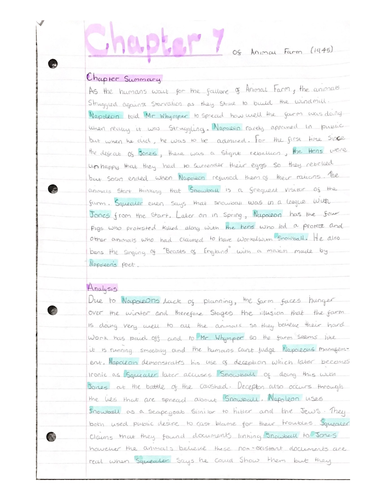 Chapter 7 OF Animal Farm (1945)
Chapter Summary
As the humans wait for the failure of Animal Farm, the animals
struggled against starvation as they strive to build the windmill.
Napoleon got Mr Whymper to spread how well the farm was doing
when really it was struggling. Napoleon rarely appeared in public
but when he did, he was to be admired. For the first time since
the degree of Jones, there was a slight rebellion, the hens were
unhappy that they had to surrender their eggs so they rebelled
but soon ended when Napoleon refused them of their rations. The
animals start thinking that Snowball is a frequent visitor of the
farm. Squealer even says that Snowball was in a league with
Jones from the start. Later on in Spring, Napoleon has the four
pigs who protested killed along with the hens who led a protest and
other animals who had claimed to have worked with Snowball. He also
bans the singing of "Beasts of England" with a nation made by
Napoleon's poet.
Analysis
Due to Napoleons lack of planning, the farm faces hunger
over the winter and therefore stages the illusion that the farm
is doing very well to all the animals so they believe their hard
work has paid off and to Mr Whymper so the farm seems like
it is running smoothly and the humans cant judge Napoleons
ent. Napoleon demonstrates his use of deception which later becomes
ironic as Squealer later accuses Snowball of doing this with
Jones in the battle of the cowshed. Deception also occurs through
the lies that are spread about Snowball. Napoleon uses
Snowball as a scapegoat similar to Hitler and the Jews. They
both used public desire to cast blame for their troubles. Squealer
claims that they found documents linking Snowball to Jones
however the animals believe these non-existent documents are
real when Squealer says he could show them but they